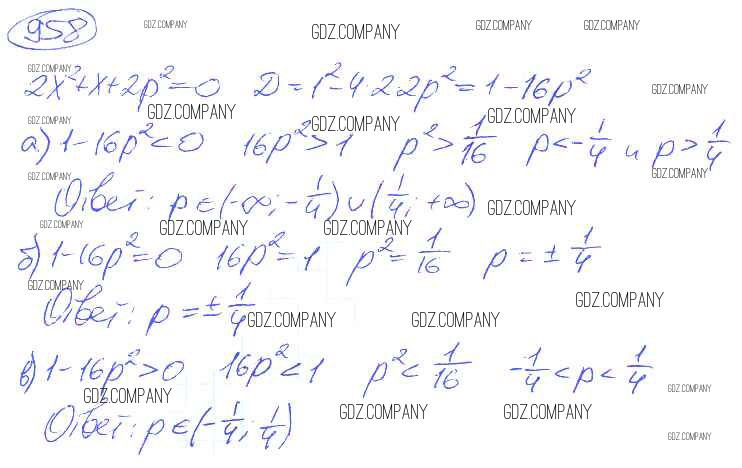 958 GDZ.COMPANY GDZ.COMPANY GDZ.COMPANY GDZ.COMPANY
GDZ.COMPANY
2x²+x+2p²=0 D=1²-4·2·2p²=1-16p² GDZ.COMPANY
GDZ.COMPANY GDZ.COMPANY
GDZ.COMPANY GDZ.COMPANY
а) 1-16p²<0 16p²>1 p²>1/16 p<-1/4 и p>1/4
GDZ.COMPANY GDZ.COMPANY
Ответ: p∈(-∞;-1/4)∪(1/4;+∞) GDZ.COMPANY
GDZ.COMPANY GDZ.COMPANY GDZ.COMPANY
б) 1-16p²=0 16p²=1 p²=1/16 p=±1/4
GDZ.COMPANY GDZ.COMPANY
Ответ: p=±1/4
GDZ.COMPANY GDZ.COMPANY
в) 1-16p²>0 16p²<1 p²<1/16 -1/4<p<1/4
GDZ.COMPANY GDZ.COMPANY
Ответ: p∈(-1/4;1/4) GDZ.COMPANY GDZ.COMPANY
GDZ.COMPANY